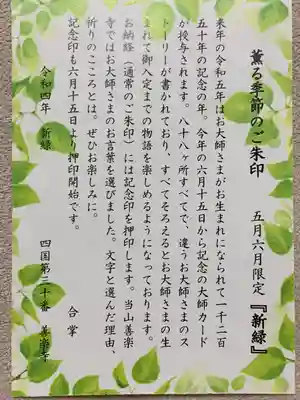 薫る季節のご朱印
五月六月限定『新緑』
来年の令和五年はお大師さまがお生まれになられて一千二百
五十年の記念の年。今年の六月十五日から記念の大師カード
が授与されます。八十八ヶ所すべてで、違うお大師さまのス
トーリーが書かれており、すべてそろえるとお大師さまの生
まれて御入定までの物語を楽しめるようになっております。
お納経（通常のご朱印）には記念印を押印します。当山善楽
寺ではお大師さまのお言葉を選びました。文字と選んだ理由、
祈りのこころとは。ぜひお楽しみに。
記念印も六月十五日より押印開始です。
合掌
令和四年 新緑
四国第三十番 善楽寺